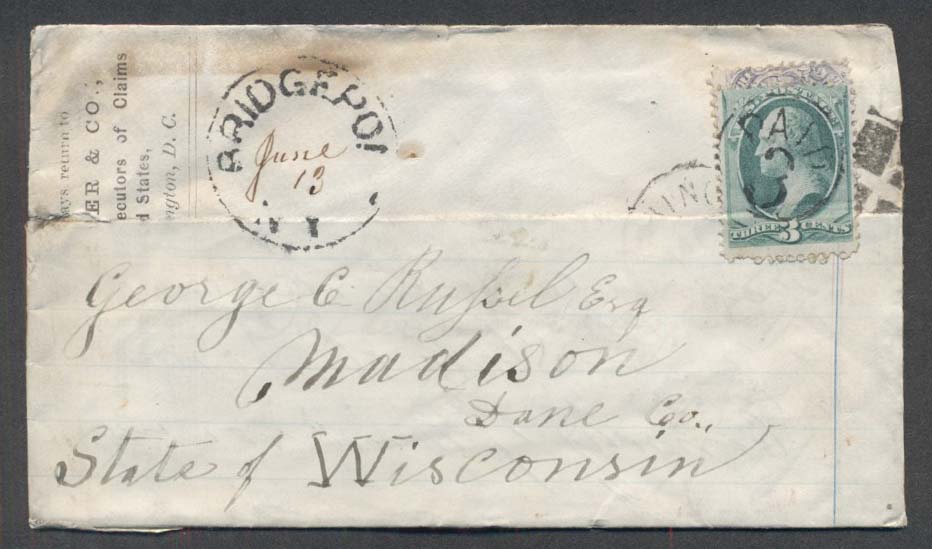 ays return to
ER & CO.,
ecutors of Claims
d States,
ington, D. C.
BRIDGEPO
June
13
PAID
THREE 3 CENTS
George C. Russel Esq
Madison
Dane Co.,
State of Wisconsin